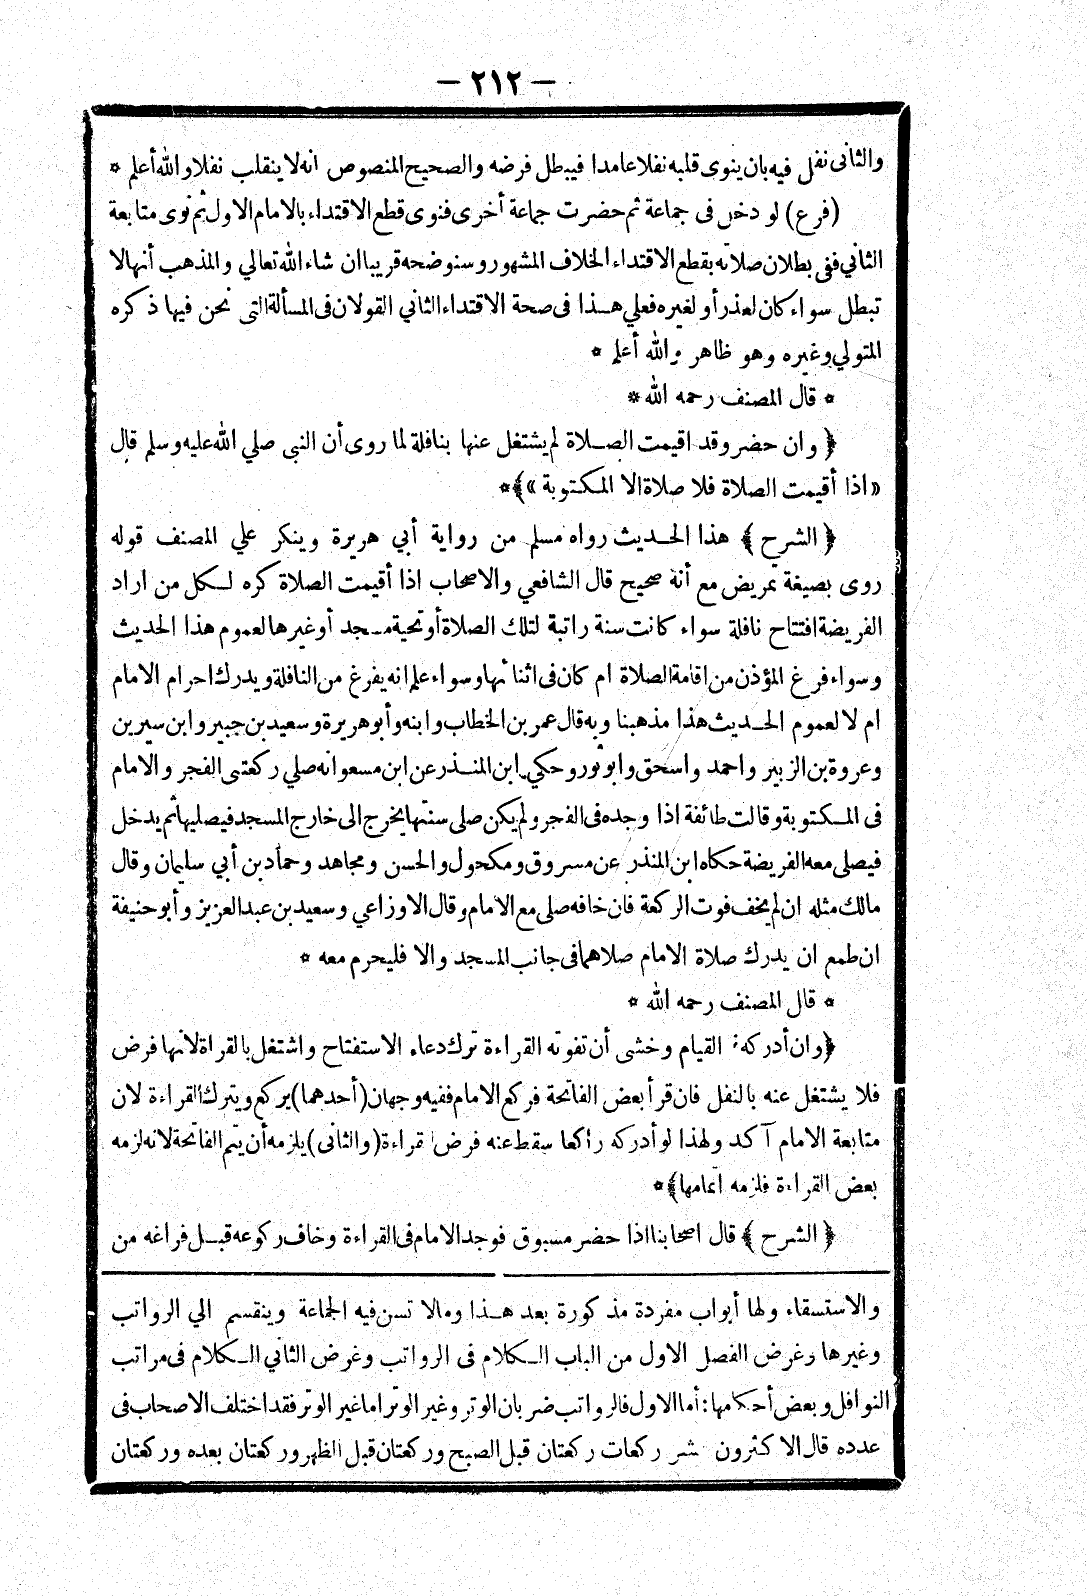 — ٢١٢ —
والثانى نفل فيه بان ينوى قلبه نفلا عامدا فيبطل فرضه والصحيح المنصوص انه لا ينقلب نفلا والله أعلم *
(فرع) لو دخل فى جماعة ثم حضرت جماعة أخرى فنوى قطع الاقتداء بالامام الاول ثم نوى متابعة
الثاني ففى بطلان صلاته بقطع الاقتداء الخلاف المشهور وسنوضحه قريبا ان شاء الله تعالي والمذهب أنها لا
تبطل سواء كان لعذر أو لغيره فعلي هــذا فى صحة الاقتداء الثاني القولان فى المسألة التى نحن فيها ذكره
المتولي وغيره وهو ظاهر والله أعلم *
* قال المصنف رحمه الله *
﴿ وان حضر وقد اقيمت الصــلاة لم يشتغل عنها بنافلة لما روى أن النبى صلي الله عليه وسلم قال
«اذا أقيمت الصلاة فلا صلاة الا المكتوبة »﴾*
﴿ الشرح ﴾ هذا الحــديث رواه مسلم من رواية أبي هريرة وينكر علي المصنف قوله
روى بصيغة تمريض مع أنه صحيح قال الشافعي والاصحاب اذا أقيمت الصلاة كره لــكل من اراد
الفريضة افتتاح نافلة سواء كانت سنة راتبة لتلك الصلاة أو تحية مسجد أو غيرها لعموم هذا الحديث
وسواء فرغ المؤذن من اقامة الصلاة ام كان فى اثنائها وسواء علم انه يفرغ من النافلة ويدرك احرام الامام
ام لا لعموم الحــديث هذا مذهبنا وبه قال عمر بن الخطاب وابنه وأبو هريرة وسعيد بن جبير وابن سيرين
وعروة بن الزبير واحمد واسحق وابو ثور وحكي ابن المنــذر عن ابن مسعو انه صلي ركعتى الفجر والامام
فى المــكتوبة وقالت طائفة اذا وجده فى الفجر ولم يكن صلى سنتها يخرج الى خارج المسجد فيصليها ثم يدخل
فيصلى معه الفريضة حكاه ابن المنذر عن مسروق ومكحول والحسن ومجاهد وحماد بن أبي سليمان وقال
مالك مثله ان لم يخف فوت الركعة فان خافه صلى مع الامام وقال الاوزاعي وسعيد بن عبد العزيز وأبو حنيفة
ان طمع ان يدرك صلاة الامام صلاهما فى جانب المسجد والا فليحرم معه *
* قال المصنف رحمه الله *
﴿وان أدركه القيام وخشى أن تفوته القراءة ترك دعاء الاستفتاح واشتغل بالقراة لانها فرض
فلا يشتغل عنه بالنفل فان قرأ بعض الفاتحة فركع الامام ففيه وجهان (أحدهما) يركع ويترك القراءة لان
متابعة الامام آكد ولهذا لو أدركه راكعا سقط عنه فرض القراءة (والثانى) يلزمه أن يتم الفاتحة لانه لزمه
بعض القراءة فلزمه اتمامها﴾*
﴿ الشرح ﴾ قال اصحابنا اذا حضر مسبوق فوجد الامام فى القراءة وخاف ركوعه قبــل فراغه من
والاستسقاء ولها أبواب مفردة مذكورة بعد هــذا وما لا تسن فيه الجماعة وينقسم الي الرواتب
وغيرها وغرض الفصل الاول من الباب الــكلام فى الرواتب وغرض الثاني الــكلام فى مراتب
النوافل وبعض أحكامها: أما الاول فالرواتب ضربان الوتر وغير الوتر اما غير الوتر فقد اختلف الاصحاب فى
عدده قال الاكثرون عشر ركعات ركعتان قبل الصبح وركعتان قبل الظهر وركعتان بعده وركعتان